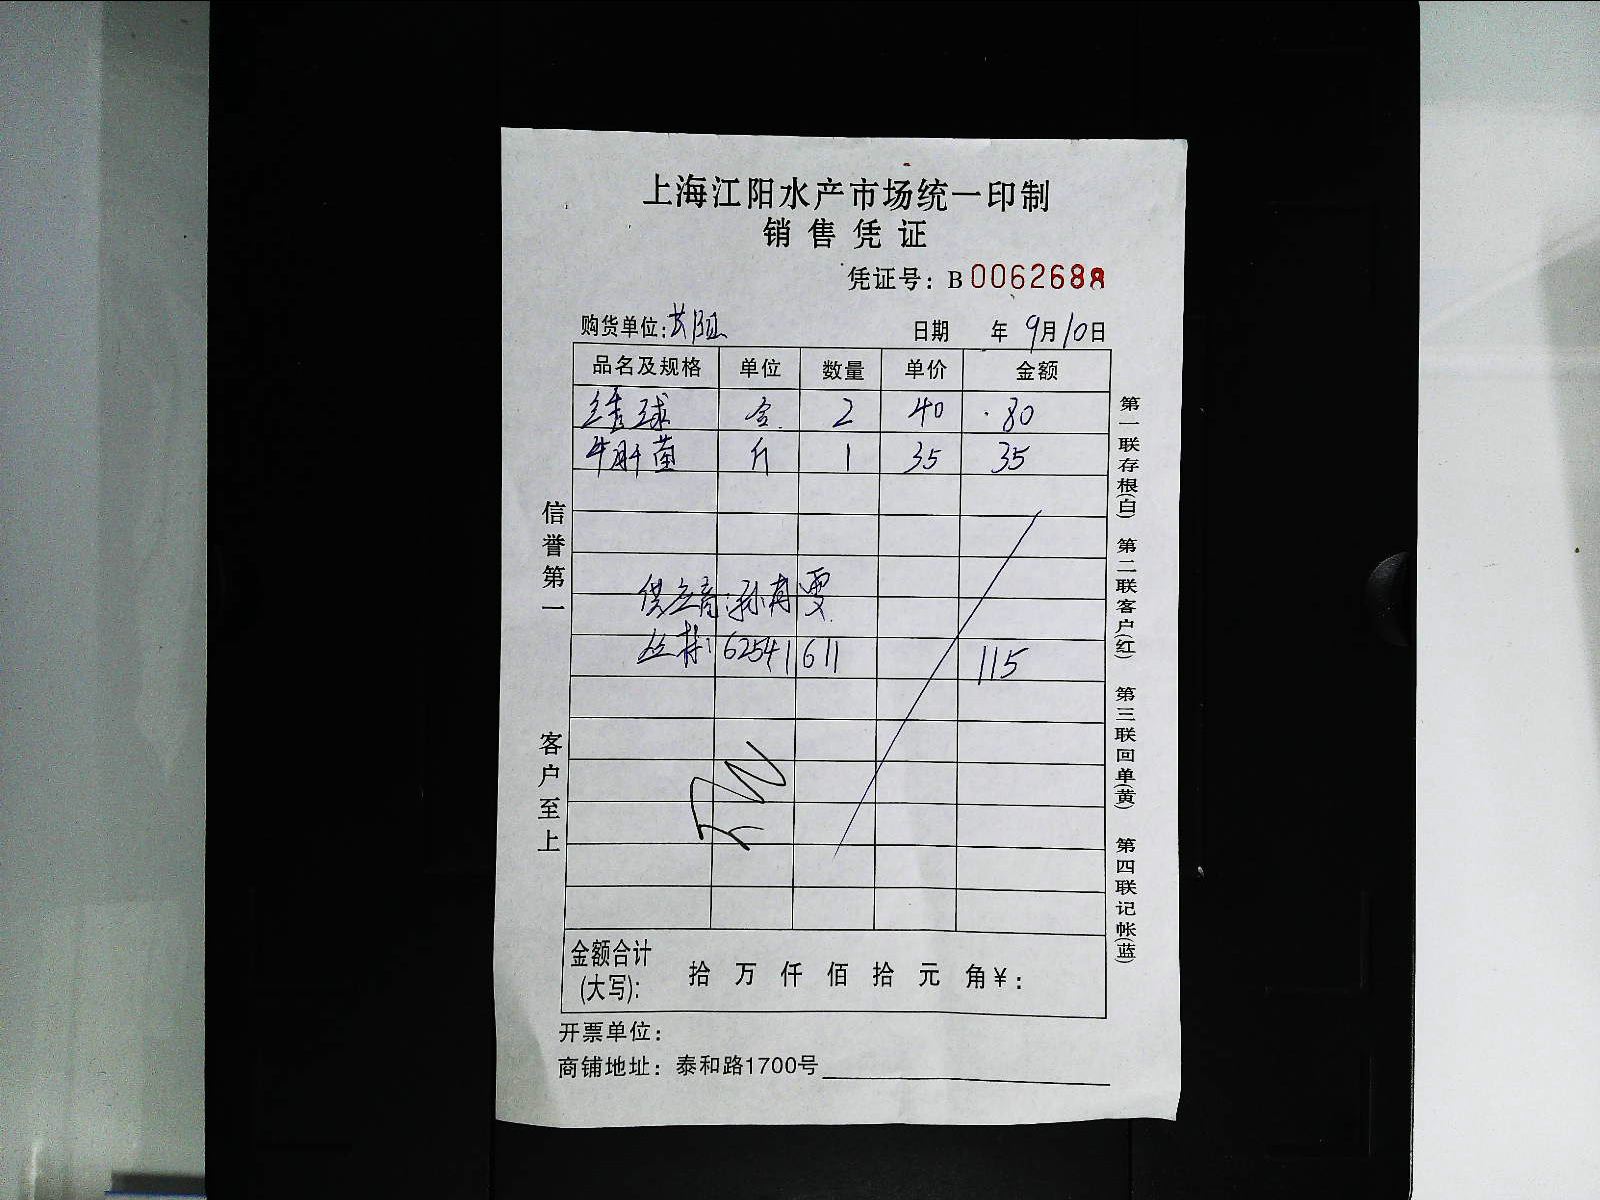 上海江阳水产市场统一印制
销售凭证
凭证号：B 0062688
购货单位： 日期 年 9月10日
品名及规格 单位 数量 单价 金额
球 2 40 80
牛肝菌 斤 1 35 35
供应商：孙
62541611 115
金额合计(大写)： 拾 万 仟 佰 拾 元 角 ¥：
开票单位：
商铺地址：泰和路1700号
信誉第一 客户至上
第一联存根(白) 第二联客户(红) 第三联回单(黄) 第四联记帐(蓝)